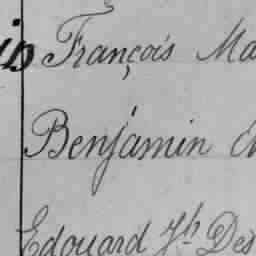 François Ma
Benjamin
Edouard Jh Des